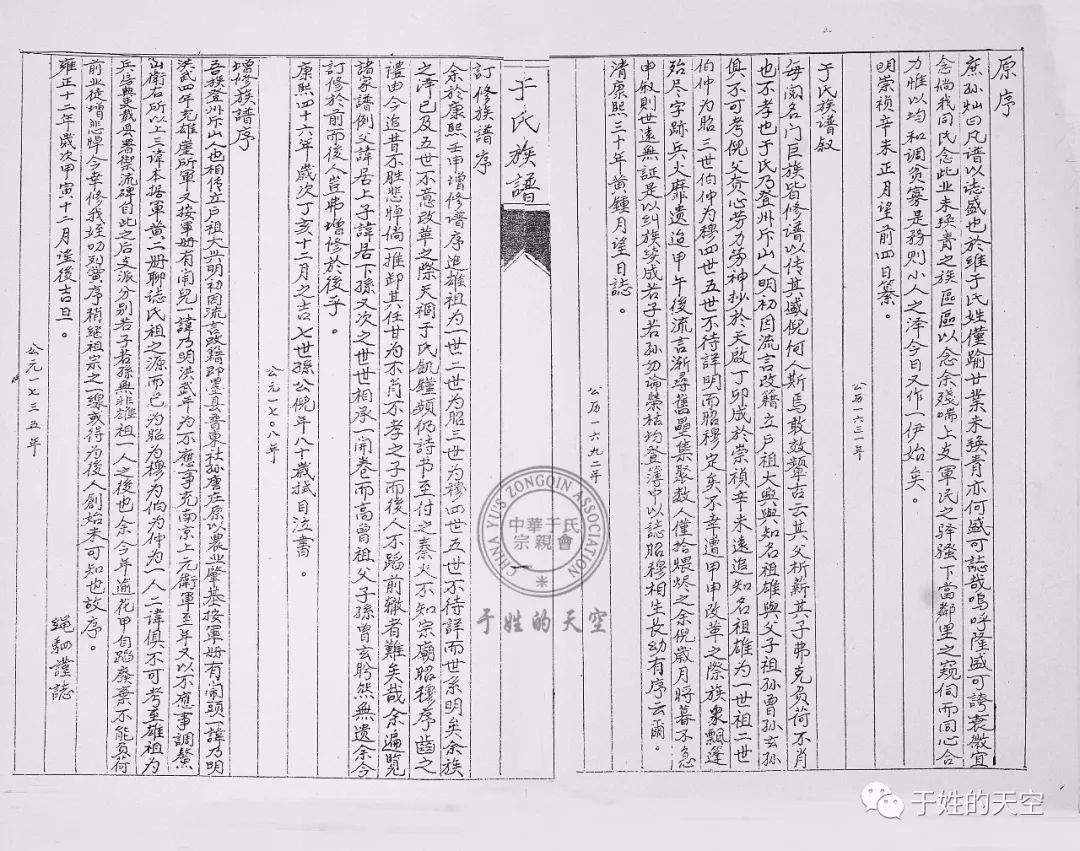 原序
庶孙灿曰凡谱以志盛也於维于氏姓僅踰廿業未䄂青亦何盛可誌哉嗚呼隆盛可誇衰微宜
念倘我同氏念此业未䄂青之族區區以念余残喘上支軍民之驿骚下當鄰里之窺伺而同心合
力惟以均和调贫寡是務則小人之泽今日又作一伊始矣。
明崇祯辛未正月望前四日纂。
公历一六三一年
于氏族谱叙
每闻名门巨族皆修谱以传其盛倪何人斯焉敢效颦古云其父析薪其子弗克负荷不肖
也不孝也于氏乃登州斥山人明初因流言改籍立户祖大興與知名祖雄與父子祖孙曾孙玄孙
俱不可考倪父贲心劳力劳神抄於天啟丁卯成於崇禎辛未遠追知名祖雄為一世祖二世
伯仲为昭三世伯仲为穆四世五世不待詳明而昭穆定矣不幸遭甲申改革之際族衆飄蓬
殆尽字跡兵火靡遗迨甲午後流言渐尋舊壘集聚数人僅拾煨烬之余倪歲月將暮不急
申叙则世遠無証是以糾族续成若子若孙勿論榮枯均登簿中以誌昭穆相生長幼有序云爾。
清康熙三十年黄鍾月望日誌。
公历一六九二年
于氏族譜
訂修族譜序
余於康熙壬申增修譜序追雄祖为一世二世为昭三世为穆四世五世不待詳而世系明矣余族
之泽已及五世不意改革之際天禍于氏飢饉頻仍詩书至付之秦火不知宗廟昭穆序齒之
禮由今追昔不胜悲悼倘一推卸其任甘为不肖不孝之子而後人不蹈前辙者難矣哉余遍覽
諸家譜例父諱居上子諱居下孫又次之世世相承一開卷而高曾祖父子孫曾玄昤然無遺余今
訂修於前而後人豈弗增修於後乎。
康熙四十六年歲次丁亥十二月之吉七世孫公倪年八十歲拭目泣書。
公元一七〇八年
增修族譜序
吾族登州斥山人也相傳立户祖大兴明初因流言改籍即墨县晋東社孙唐庄原以農业肇基按軍册有闹頭一諱乃明
洪武四年充雄崖所軍又按軍册有闹兒一諱乃明洪武年为不應事充南京上元衛軍至年又以不應事調鰲
山衛右所以上三諱本据軍黄二册聊誌氏祖之源而已为昭为穆为伯为仲为一人二諱俱不可考至雄祖为
兵信與吏戴具署禦流碑自此之后支派分别若子若孫無非雄祖一人之後也余今年逾花甲自蹈廢棄不能負荷
前业徒增悲悼今幸修我姪叨列黉序稍继祖宗之一線或得为後人創始未可知也故序。
雍正十二年歲次甲寅十二月望後吉旦。
绳駉謹誌
公元一七三五年
CHINA YU'S ZONGQIN ASSOCIATION
中華于氏
宗親會
于姓的天空
于姓的天空